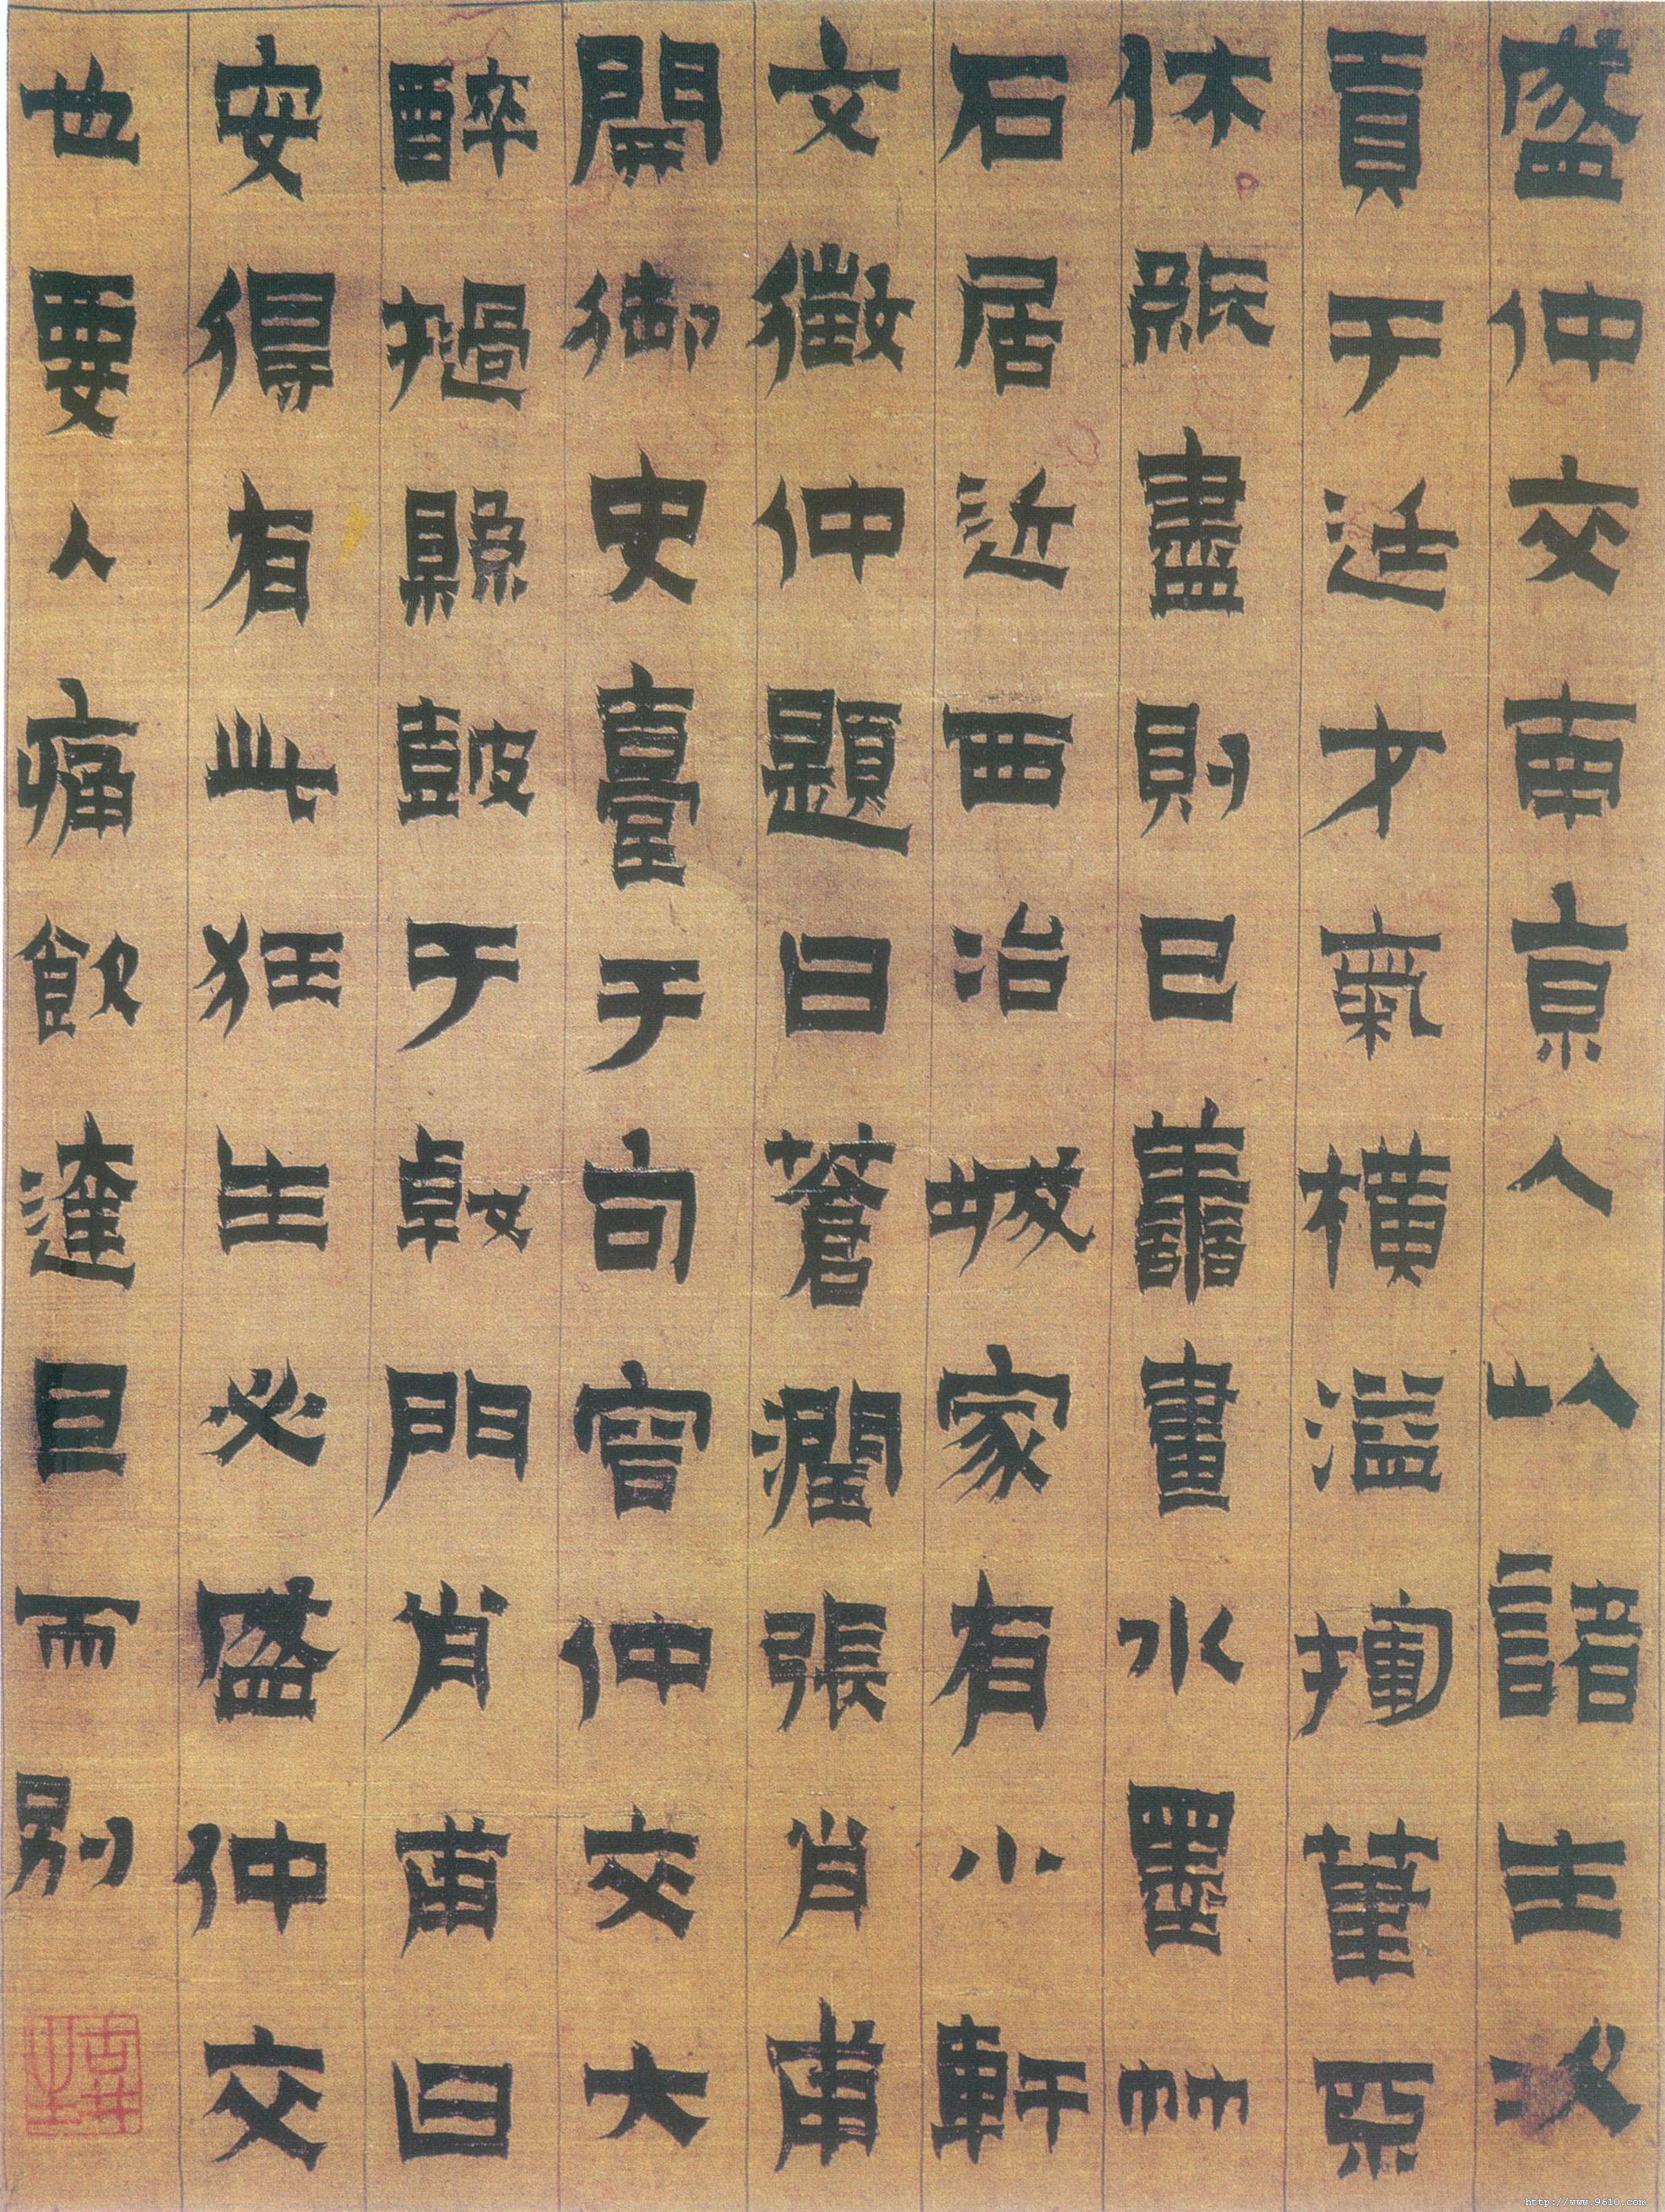 盛仲交南京人以諸生次
貢于廷才氣橫溢揮筆
休紙盡則已譱畫水墨竹
石居近西冶城家有小軒
文徵仲題曰蒼潤張肖甫
開御史臺于句容仲交大
醉撾縣鼓于戟門肖甫曰
安得有此狂生必盛仲交
也要入痛飲達旦而別
http://www.9610.com